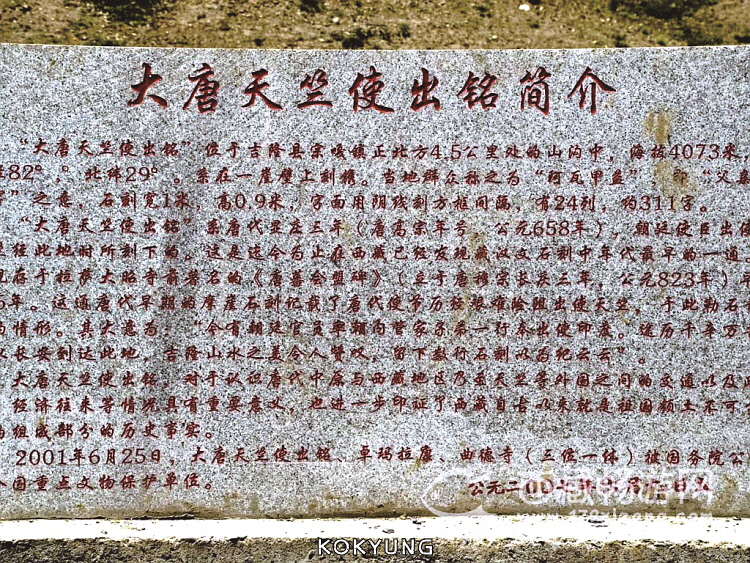 大唐天竺使出铭简介
“大唐天竺使出铭”位于吉隆县宗嘎镇正北方4.5公里处的山沟中，海拔4073米，
82°。北纬29°。系在一崖壁上刻镌。当地群众称之为“阿瓦甲英”即“父亲
”之意，石刻宽1米，高0.9米，字面用阴线刻方框间隔，有24列，约311字。
“大唐天竺使出铭”系唐代显庆三年（唐高宗年号，公元658年）朝廷使臣出使
经此地时所刻下的。这是迄今为止在西藏已经发现藏汉文石刻中年代最早的一通
现存于拉萨大昭寺前著名的《唐蕃会盟碑》（立于唐穆宗长庆三年，公元823年）
年。这通唐代早期的摩崖石刻记载了唐代使节历经艰难险阻出使天竺，于此勒石
的情形。其大意为：“今有朝廷官员率领内管家子弟一行奉出使印度。途历千辛万
长安到达此地，吉隆山水之美令人赞叹，留下数行石刻以为纪云云”。
大唐天竺使出铭，对于认识唐代中原与西藏地区乃至天竺等外国之间的交通以及
经济往来等情况具有重要意义，也进一步印证了西藏自古以来就是祖国领土不可
的组成部分的历史事实。
2001年6月25日，大唐天竺使出铭、卓玛拉康、曲德寺（三位一体）被国务院公
全国重点文物保护单位。
公元二00七年
KOKYUNG